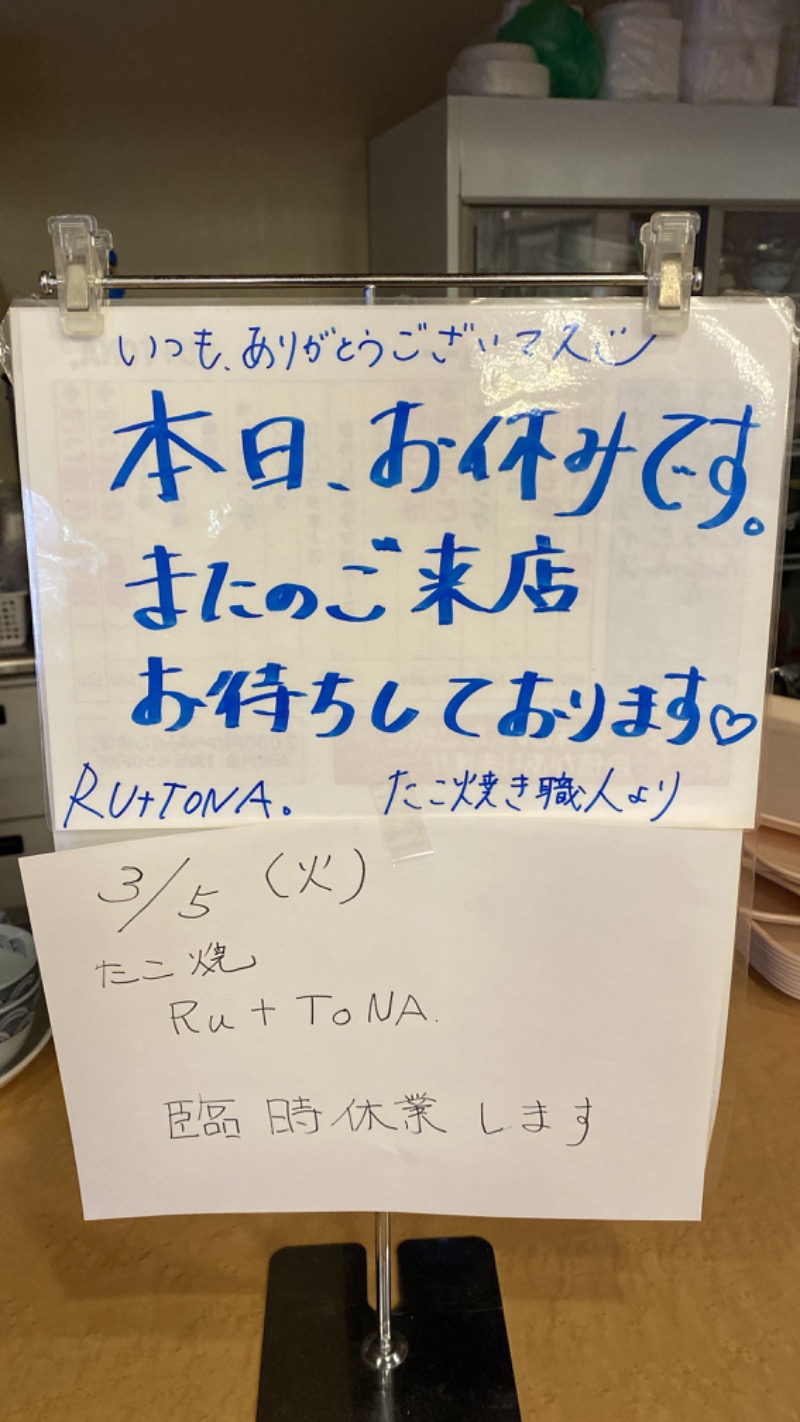 いつも、ありがとうございマス
本日、お休みです。
またのご来店
お待ちしております♡
RU+TONA。 たこ焼き職人より
3/5 (火)
たこ焼
Ru+ToNA.
臨時休業します